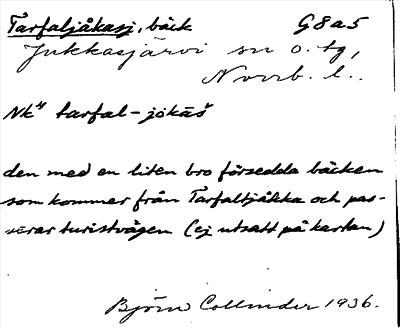 Tarfaljåkasj, bäck G8a5
Jukkasjärvi sn o. tg,
Norrb. l.
Nk⁴ tarfal-jökāš
den med en liten bro försedda bäcken
som kommer från Tarfaltjåkka och pas-
serar turistvägen (ej utsatt på kartan)
Björn Collinder 1936.